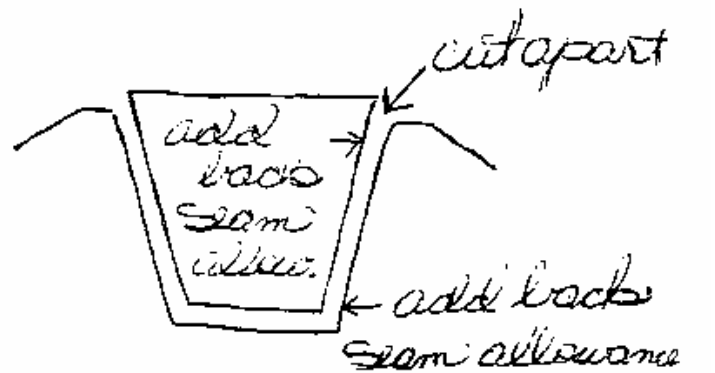 cut apart
add
back
seam
allow.
add back
seam allowance